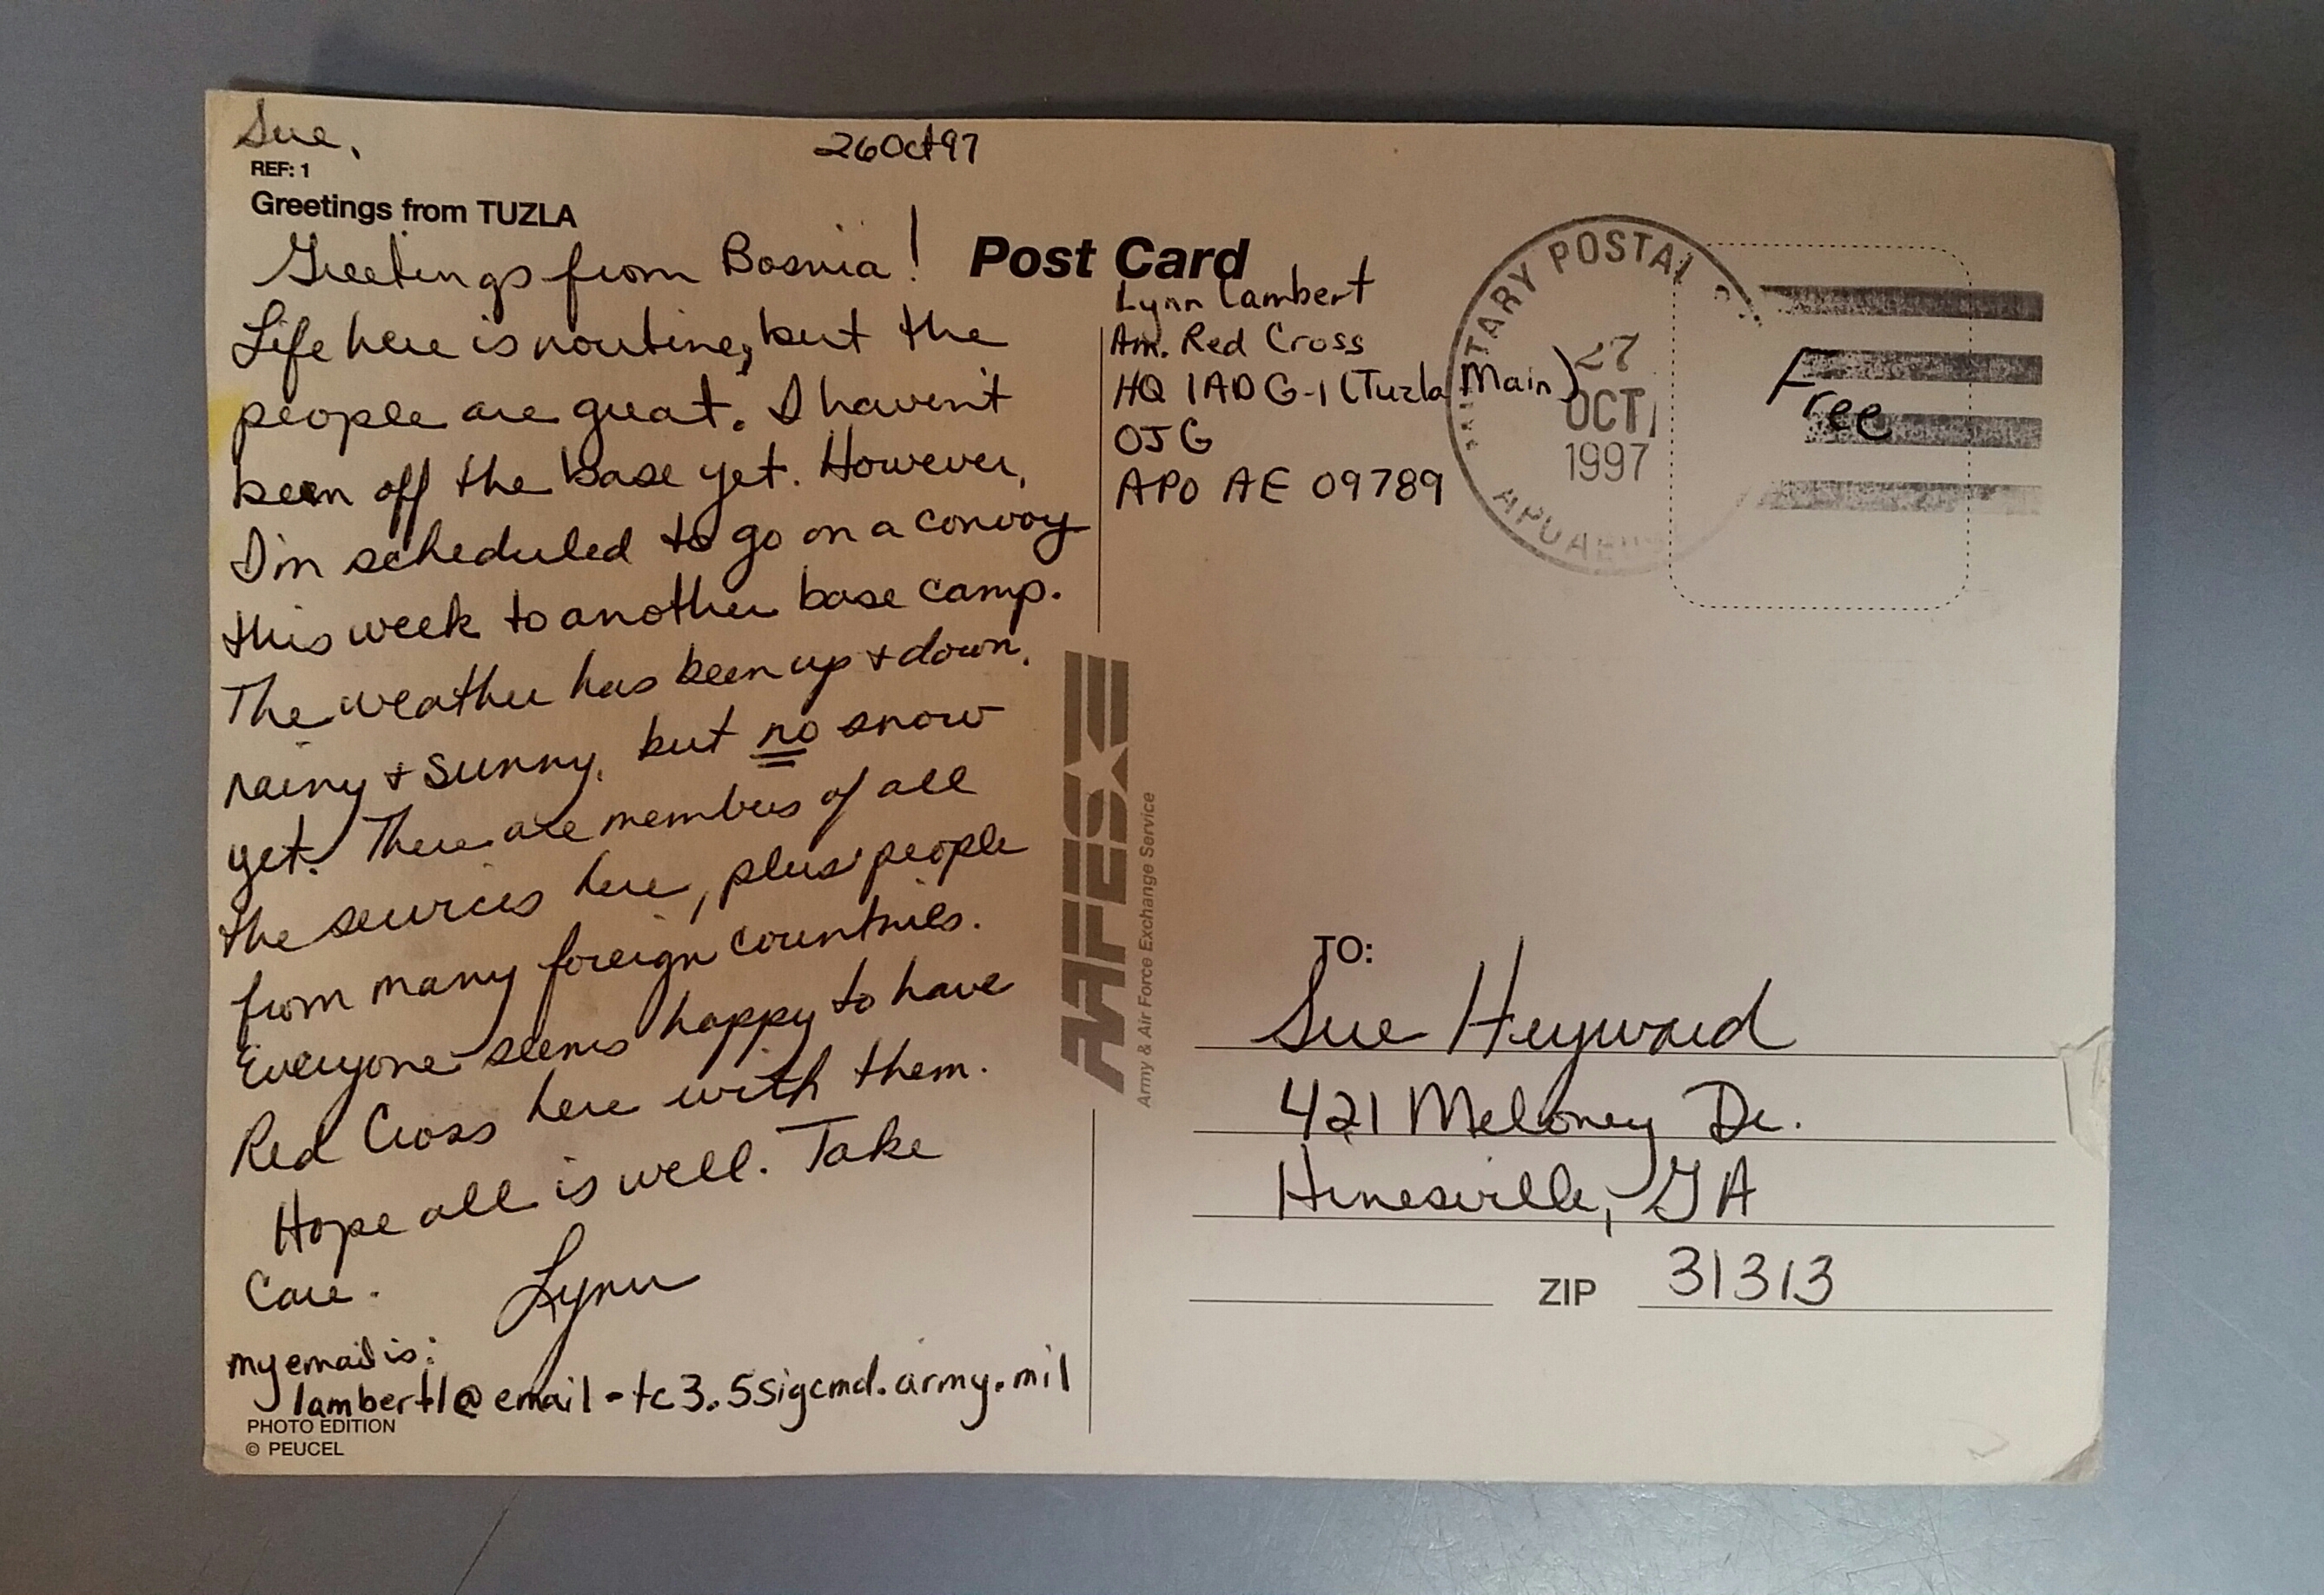 Sue,
26 Oct 97
REF: 1
Greetings from TUZLA
Greetings from Bosnia!
Life here is routine, but the
people are great. I haven't
been off the base yet. However,
I'm scheduled to go on a convoy
this week to another base camp.
The weather has been up & down,
rainy & sunny, but no snow
yet. There are members of all
the services here, plus people
from many foreign countries.
Everyone seems happy to have
Red Cross here with them.
Hope all is well. Take
Care. Lynn
my email is:
lambertl@email-tc3.5sigcmd.army.mil
PHOTO EDITION
© PEUCEL
Post Card
Lynn Lambert
Am. Red Cross
HQ 1AD G-1 (Tuzla Main)
OJG
APO AE 09789
MILITARY POSTAL
27
OCT
1997
APO AE
Free
AAFES
Army & Air Force Exchange Service
TO:
Sue Heyward
421 Meloney Dr.
Hinesville, GA
ZIP 31313